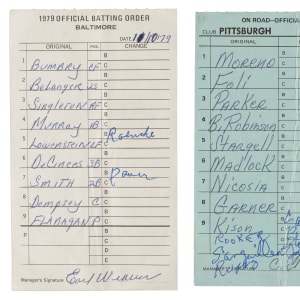 1979 OFFICIAL BATTING ORDER
BALTIMORE
DATE 10/10/79
ORIGINAL POS. CHANGE
1 Bumbry CF B
C
2 Belanger SS B
C
3 Singleton RF B
C
4 Murray 1B B
C
5 Lowenstein LF B Roenicke
C
6 DeCinces 3B B
C
7 Smith 2B B Dauer
C
8 Dempsey C B
C
9 Flanagan P B
C
D
E
P B
C
D
E
Manager's Signature Earl Weaver
ON ROAD-OFFICIAL
CLUB PITTSBURGH
ORIGINAL
1 Moreno
2 Foli
3 Parker
4 B. Robinson
5 Stargell
6 Madlock
7 Nicosia
8 Garner
9 Kison
Rooker
MANAGER'S SIGNATURE C.